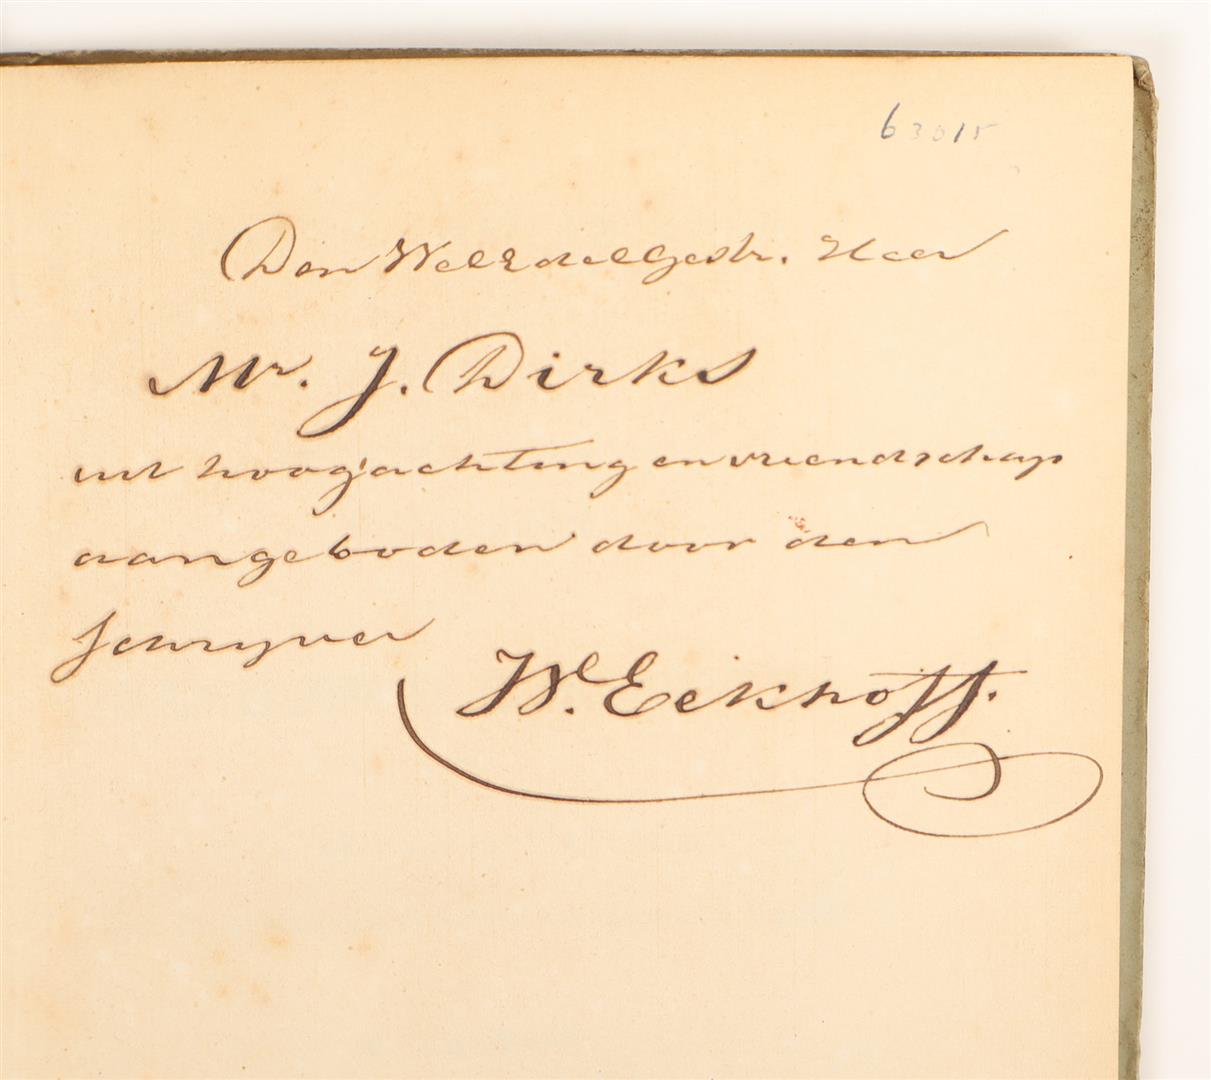 63015
Den WelEdelGestr. Heer
Mr. J. Dirks
uit hoogachting en vriendschap
aangeboden door den
Schryver
W. Eekhoff.